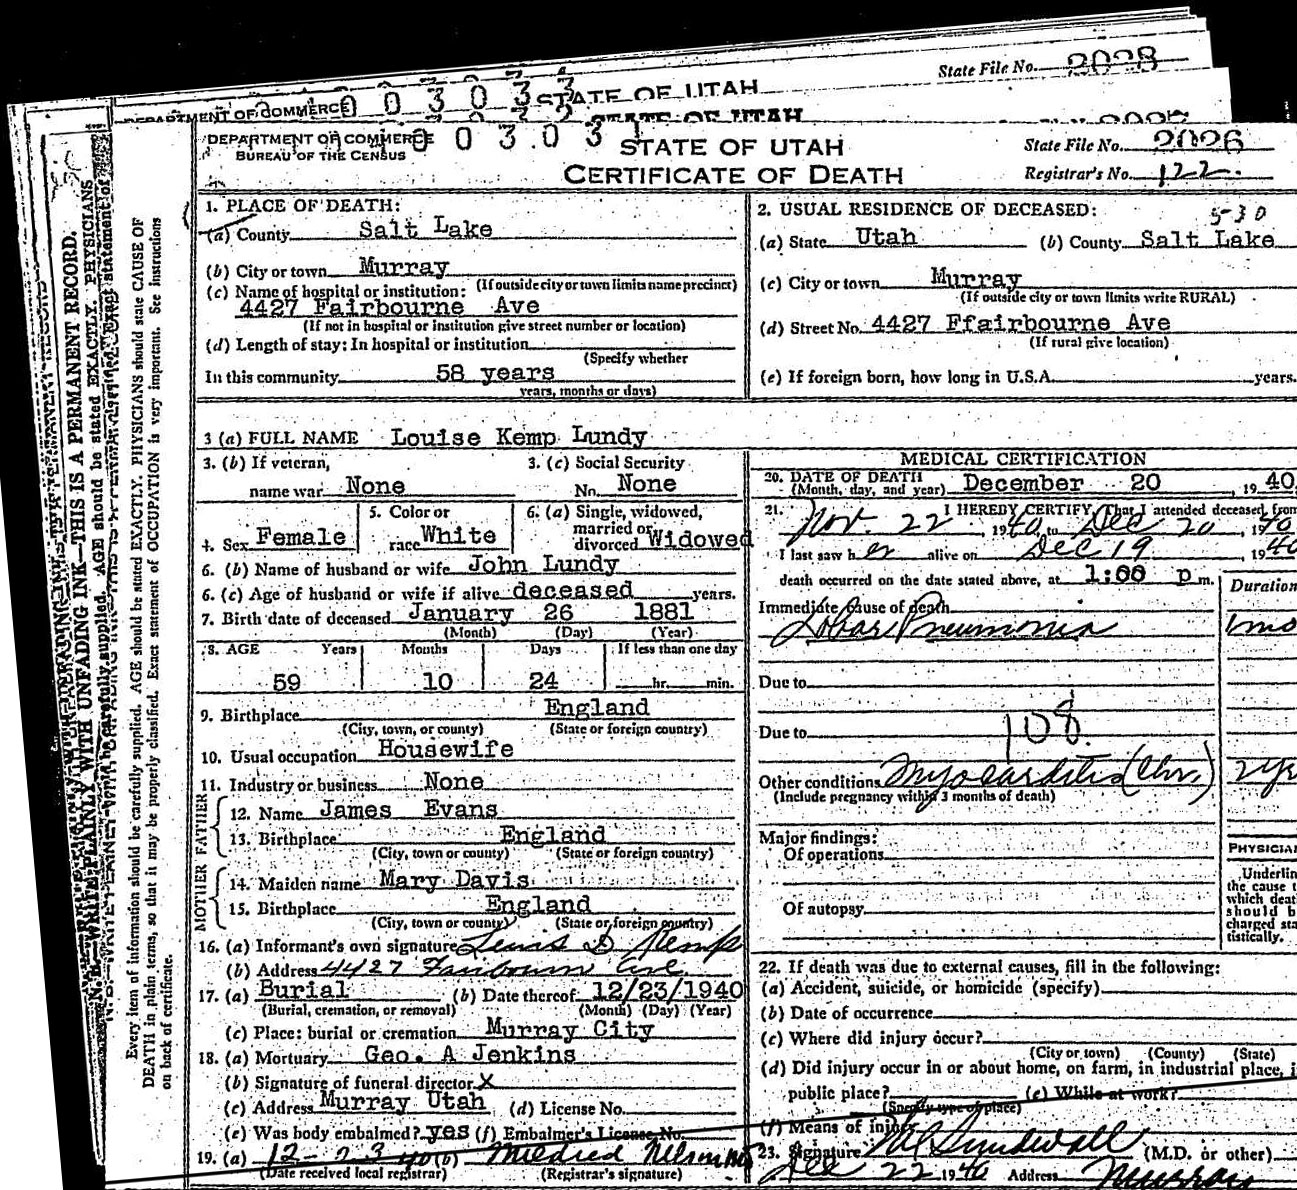 State File No. 2028
DEPARTMENT OF COMMERCE 0 0 3 0 3 3 STATE OF UTAH
STATE OF UTAH
DEPARTMENT OF COMMERCE 0 0 3 0 3 1 STATE OF UTAH State File No. 2026
BUREAU OF THE CENSUS
CERTIFICATE OF DEATH Registrar's No. 122.
N. B.—WRITE PLAINLY WITH UNFADING INK—THIS IS A PERMANENT RECORD.
Every item of information should be carefully supplied. AGE should be stated EXACTLY. PHYSICIANS should state CAUSE OF
DEATH in plain terms, so that it may be properly classified. Exact statement of OCCUPATION is very important. See instructions
on back of certificate.
1. PLACE OF DEATH:
(a) County Salt Lake
(b) City or town Murray
(If outside city or town limits name precinct)
(c) Name of hospital or institution:
4427 Fairbourne Ave
(If not in hospital or institution give street number or location)
(d) Length of stay: In hospital or institution
(Specify whether
In this community 58 years
years, months or days)
2. USUAL RESIDENCE OF DECEASED: 5-30
(a) State Utah (b) County Salt Lake
(c) City or town Murray
(If outside city or town limits write RURAL)
(d) Street No. 4427 Ffairbourne Ave
(If rural give location)
(e) If foreign born, how long in U.S.A. years.
3 (a) FULL NAME Louise Kemp Lundy
3. (b) If veteran, 3. (c) Social Security
name war None No. None
4. Sex Female 5. Color or race White 6. (a) Single, widowed, married or divorced Widowed
6. (b) Name of husband or wife John Lundy
6. (c) Age of husband or wife if alive deceased years.
7. Birth date of deceased January 26 1881
(Month) (Day) (Year)
8. AGE Years Months Days If less than one day
59 10 24 hr. min.
9. Birthplace England
(City, town, or county) (State or foreign country)
10. Usual occupation Housewife
11. Industry or business None
FATHER
12. Name James Evans
13. Birthplace England
(City, town or county) (State or foreign country)
MOTHER
14. Maiden name Mary Davis
15. Birthplace England
(City, town or county) (State or foreign country)
16. (a) Informant's own signature D Kemp
(b) Address 4427 Fairbourn Ave.
17. (a) Burial (b) Date thereof 12/23/1940
(Burial, cremation, or removal) (Month) (Day) (Year)
(c) Place: burial or cremation Murray City
18. (a) Mortuary Geo. A Jenkins
(b) Signature of funeral director X
(c) Address Murray Utah (d) License No.
(e) Was body embalmed? yes (f) Embalmer's License No.
19. (a) 12-23-40 (b) Mildred Nelson
(Date received local registrar) (Registrar's signature)
MEDICAL CERTIFICATION
20. DATE OF DEATH
(Month, day, and year) December 20, 1940
21. I HEREBY CERTIFY, That I attended deceased from
Nov. 22 1940, to Dec 20, 1940
I last saw her alive on Dec 19 1940
death occurred on the date stated above, at 1:00 p m.
Duration
Immediate cause of death
Lobar Pneumonia 1 mo
Due to
108.
Due to
Other conditions Myocarditis (Chr.) 2 yrs
(Include pregnancy within 3 months of death)
Major findings:
Of operations
Of autopsy
PHYSICIAN
Underline
the cause t
which deat
should b
charged sta
tistically.
22. If death was due to external causes, fill in the following:
(a) Accident, suicide, or homicide (specify)
(b) Date of occurrence
(c) Where did injury occur?
(City or town) (County) (State)
(d) Did injury occur in or about home, on farm, in industrial place, i
public place? (e) While at work?
(Specify type of place)
(f) Means of injury
23. Signature Sundwall (M.D. or other)
Dec 22 1940 Address Murray